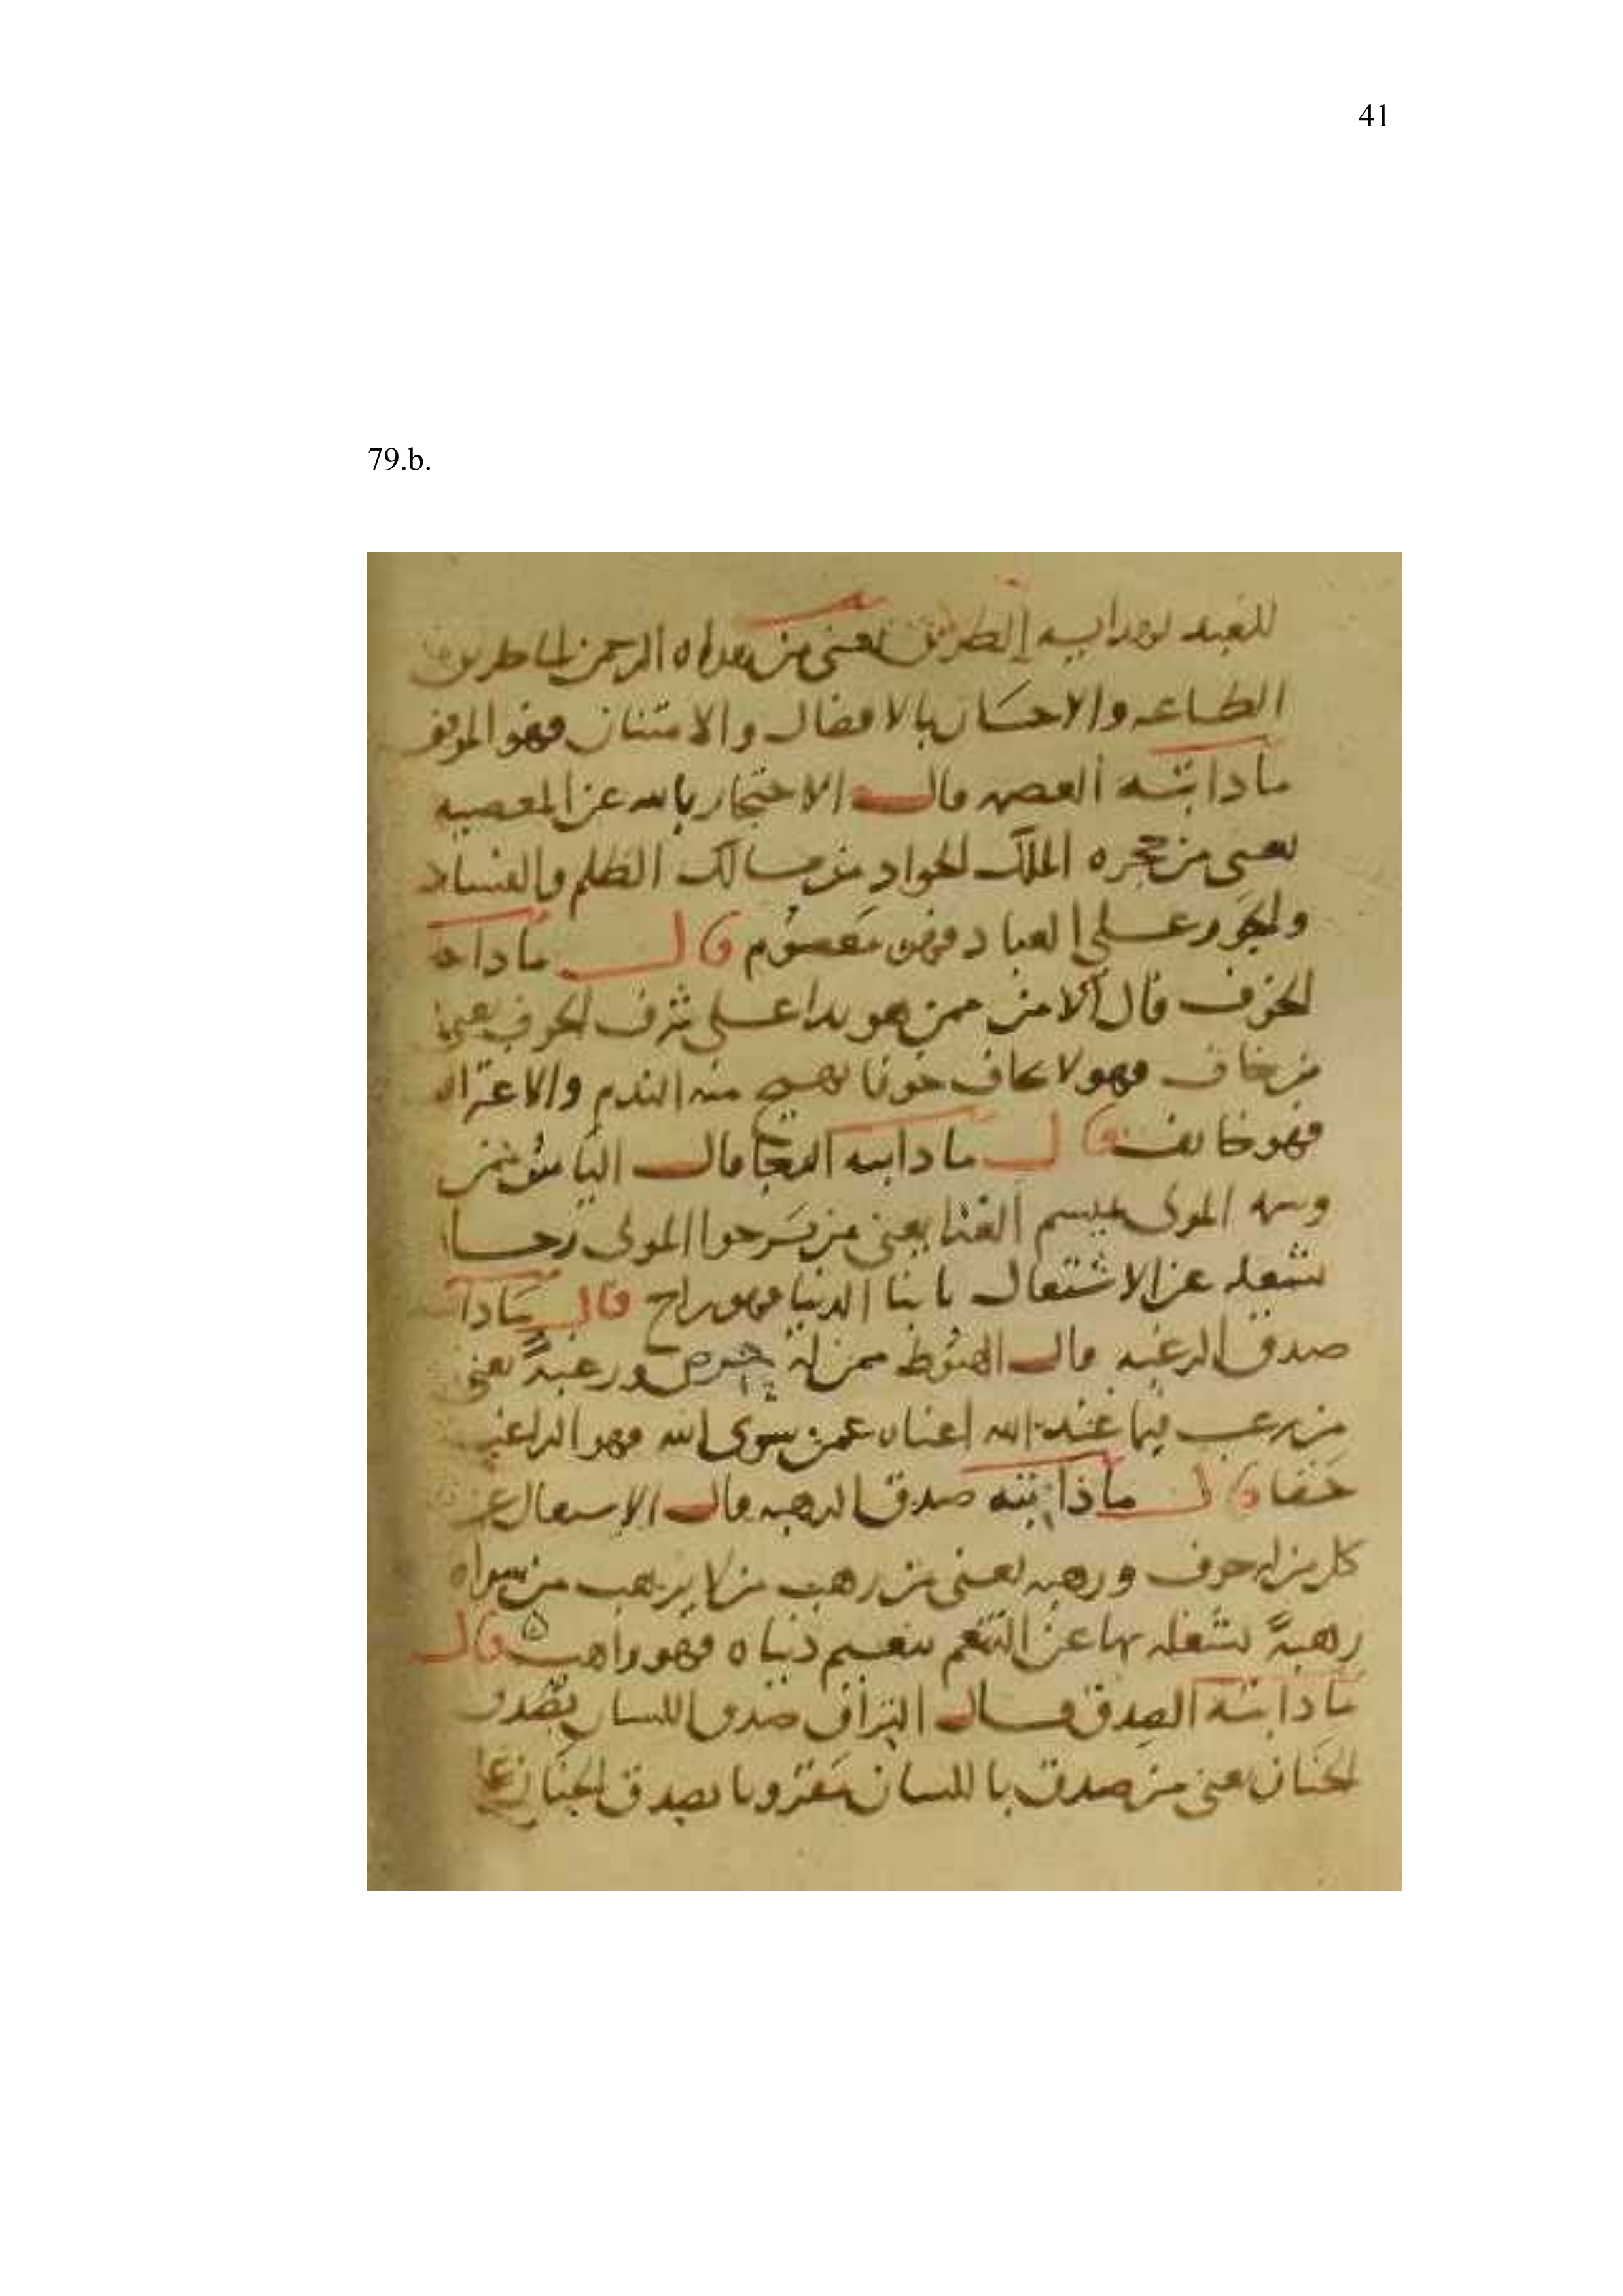 41
79.b.
للعبد لهدايه الطريق يعني من هداه الرحمن الى طريق
الطاعه والاحسان بالافضال والامتنان فهو الموفق
ماذا اثبته العصمه قال الاحتجار بالله عن المعصيه
يعني من حجره الملك الجواد من مسالك الظلم والفساد
والجور على العباد فهو معصوم قال ماذا
الخوف قال الامن ممن هو بدا على شرف الخوف يعني
من خاف فهو لا يخاف خوفا يهيج منه الندم والاعتراف
فهو خايف قال ماذا اثبته الرجا قال الياس ممن
وسمه المولى بميسم الفنا يعني من يرجوا المولى رجا
يشغله عن الاشتغال بابنا الدنيا فهو راج قال ماذا
صدق الرغبه قال القنوط ممن له حرص ورغبةً يعني
من رغب فيما عند الله اغناه عمن سوى الله فهو الراغب
حقا قال ماذا اثبته صدق الرهبه قال الاشتغال عن
كل من له خوف ورهبه يعني من رهب من لا يرهب من سواه
رهبةً تشغله بها عن التنعم بنعيم دنياه فهو راهب قال
ماذا اثبته الصدق قال اقتران صدق اللسان بصدق
الجنان يعني من صدق باللسان مقرونا بصدق الجنان